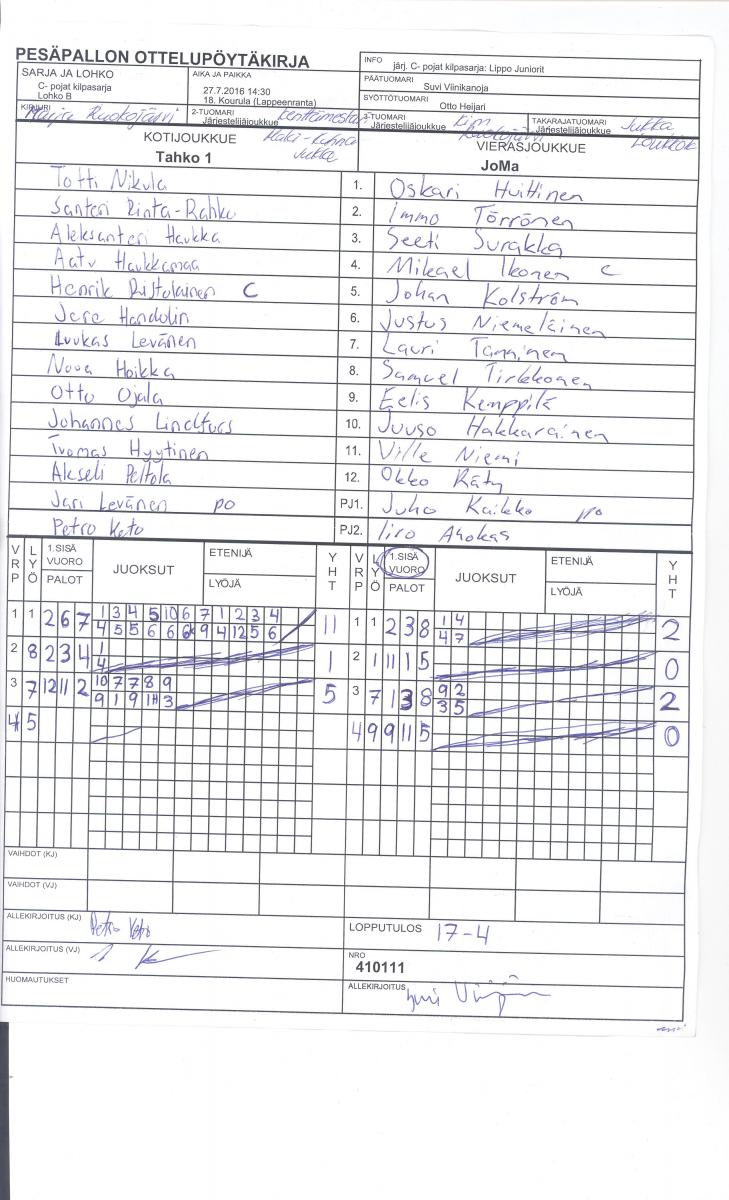 PESÄPALLON OTTELUPÖYTÄKIRJA
INFO järj. C- pojat kilpasarja: Lippo Juniorit
SARJA JA LOHKO
C- pojat kilpasarja
Lohko B
AIKA JA PAIKKA
27.7.2016 14:30
18. Kourula (Lappeenranta)
PÄÄTUOMARI Suvi Viinikanoja
SYÖTTÖTUOMARI Otto Heijari
KIRJURI Maija Ruokojärvi
2-TUOMARI Järjestelijäjoukkue
3-TUOMARI Järjestelijäjoukkue Kim Ruokojärvi
TAKARAJATUOMARI Järjestelijäjoukkue Jukka
KOTIJOUKKUE
Tahko 1
VIERASJOUKKUE
JoMa
Totti Nikula 1. Oskari Huittinen
Santeri Rinta-Rahko 2. Immo Törrönen
Aleksanteri Haukka 3. Seeti Surakka
Aatu Haukkamaa 4. Mikael Ikonen C
Henrik Ristolainen C 5. Johan Kolström
Jere Handolin 6. Justus Niemeläinen
Luukas Levänen 7. Lauri Tanninen
Nuua Hoikka 8. Samuel Tirkkonen
Otto Ojala 9. Eelis Kemppilä
Johannes Lindfors 10. Juuso Hakkarainen
Tuomas Hyytinen 11. Ville Niemi
Akseli Peltola 12. Okko Räty
Jari Levänen po PJ1. Juho Kaikko po
Petro Keto PJ2. Iiro Ahokas
VRP LYÖ 1.SISÄ VUORO PALOT JUOKSUT ETENIJÄ LYÖJÄ YHT VRP LYÖ 1.SISÄ VUORO PALOT JUOKSUT ETENIJÄ LYÖJÄ YHT
1 1 2 6 7 1 3 4 5 10 6 7 1 2 3 4 11 1 1 2 3 8 1 4 2
4 5 5 6 6 6 9 4 12 5 6 4 7
2 8 2 3 4 1 1 2 1 11 1 5 0
4
3 7 12 11 2 10 7 7 8 9 5 3 7 1 3 8 9 2 2
9 1 9 11 3 3 5
4 5 4 9 9 11 5 0
VAIHDOT (KJ)
VAIHDOT (VJ)
ALLEKIRJOITUS (KJ) Petro Keto
LOPPUTULOS 17-4
ALLEKIRJOITUS (VJ)
NRO
410111
HUOMAUTUKSET
ALLEKIRJOITUS